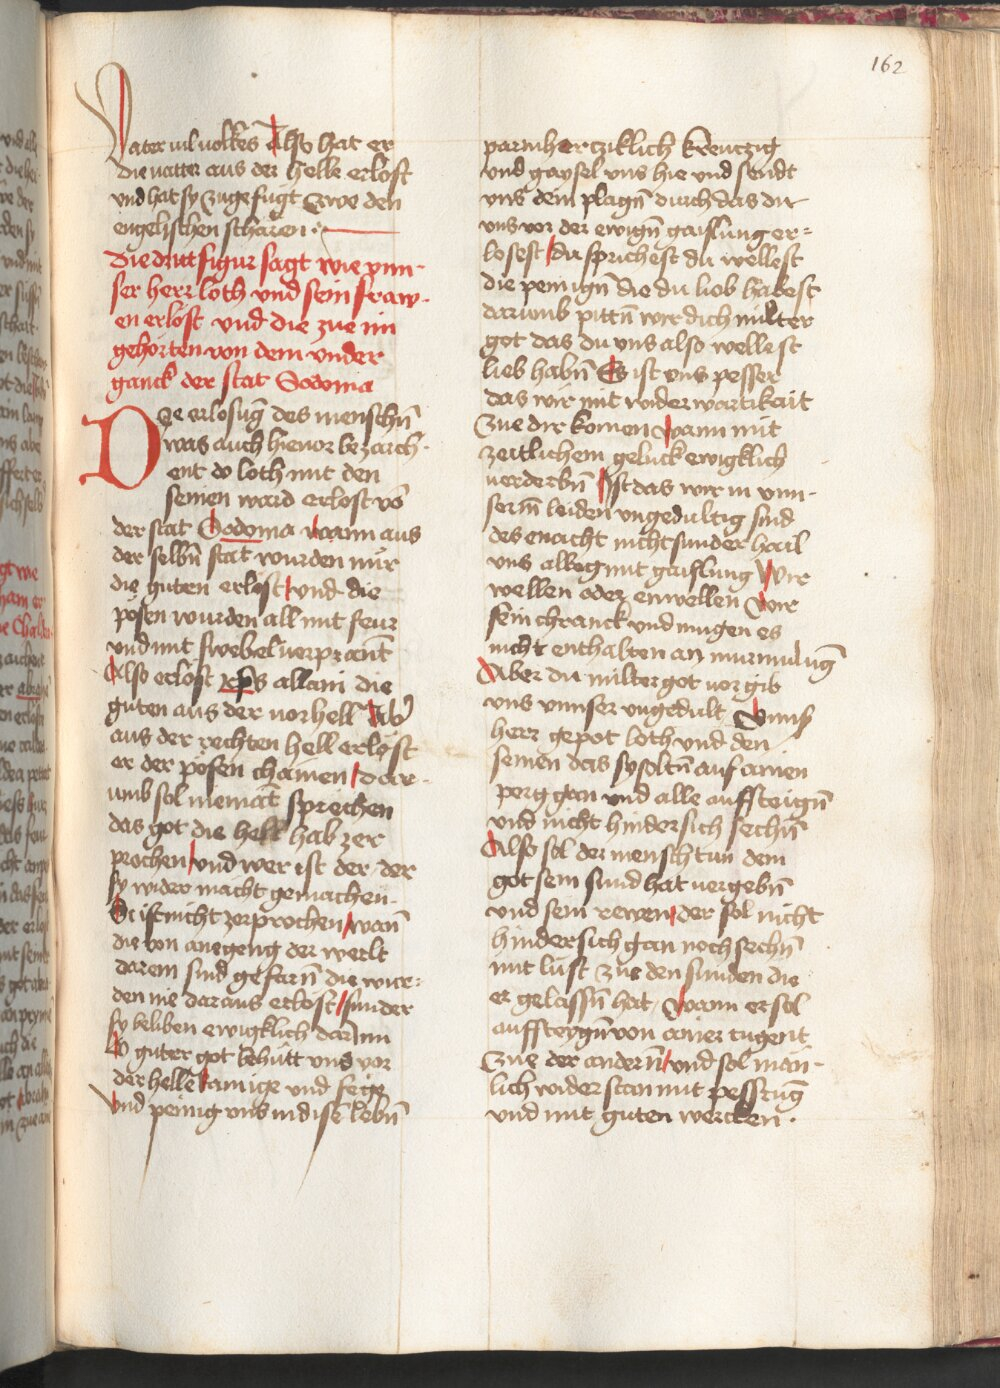 162
Vater vil volkes Also hat er
die vatter aus der helle erlost
und hat sy zuge fugt zwe den
englischen scharen
die drit figur sagt wie vnn-
ser herr loth und sein fraw-
en erlost und die zue im
gehorten von dem under
ganck der stat Sodoma
Die erlosug̃ des menschñ
was auch hievor bezaich-
ent do loth mit den
seinen ward erlost võ
der stat Sodoma wann aus
der selbñ stat wurden nur
die guten erlost und die
posen wurden all mit feur
und mit swebel verprant̃
Also erlost xp̃s allain die
guten aus der vorhell Ab̃
aus der rechten hell erlost
er der posen chainen dar-
umb sol niemat̃ sprechen
das got die hell hab zer
prochen und wer ist der der
sy wider macht gemachen
Si ist nicht zerprochen wañ
die von anegeng der werlt
darein sind gefarñ die wur-
den nie daraus erlost sunder
sy beliben ewigklich darinn
O guter got behutt uns vor
der helle ainige und fege
und peinig uns in disẽ lebñ
parmhercziklich kreuczig
und gaysel uns hie und sendt
uns dein plagñ durch das du
uns vor der ewigñ gaislung er-
losest du sprichest du wellest
die peinigñ die du lieb habest
darumb pittñ wir dich milter
got das du uns also wellest
lieb habñ Es ist uns pesser
das wir mit widerwartikait
zue dir komen wann mit
zeitlichem geluck ewigklich
verderbñ Ist das wir in vnn-
serñ leiden ungedultig sind
des enacht nicht sunder hail
uns allbeg mit gaislung Wir
wellen oder enwellen wir
sein chranck und mugen es
nicht enthalten an murmulug̃
Aber du milter got vergib
uns vnnser ungedult Vnns
herr gepot loth und den
seinen das sy soltñ auf ainen
perg gan und alle auffsteigñ
und nicht hindersich sechñ
Also sol der mensch tun dem
got sein sund hat vergebñ
und sein rewen der sol nicht
hindersich gan noch sechñ
mit lust zue den sunden die
er gelassñ hat wann er sol
auffsteygñ von ainer tugent
zue der anderñ und sol man-
lich widerstan mit pessrug̃
und mit guten wercken